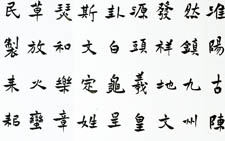 淮陽古陳
然鎮九州
發祥地文
源頭羲皇
卦白龜呈
斯文定姓
和樂章
草放火蠻
民製耒耜